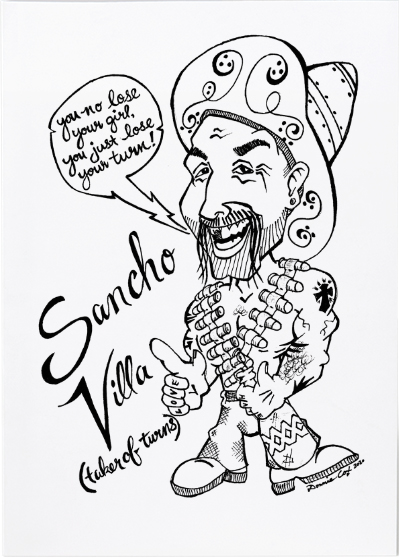 you no lose
your girl,
you just lose
your turn!
Sancho
Villa
(taker of turns)
LOVE